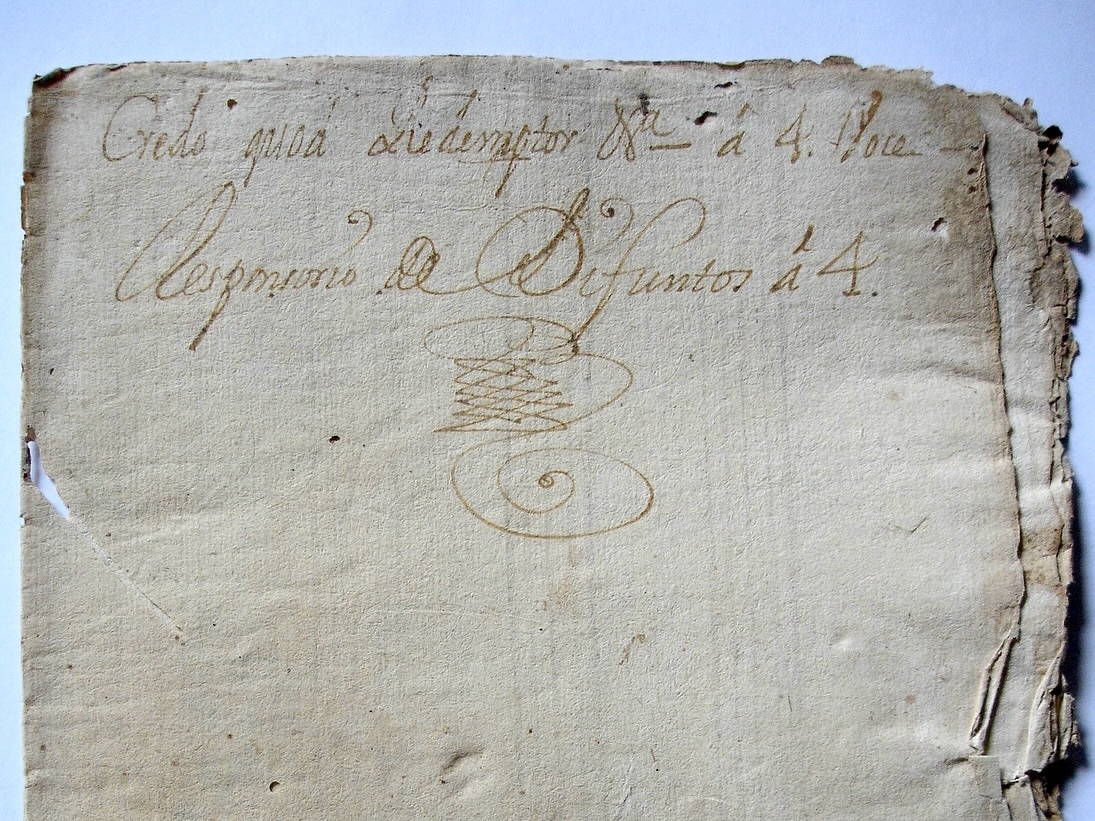 Credo quod Redemptor &ª á 4. Voce
Responsorio de Difuntos á 4.